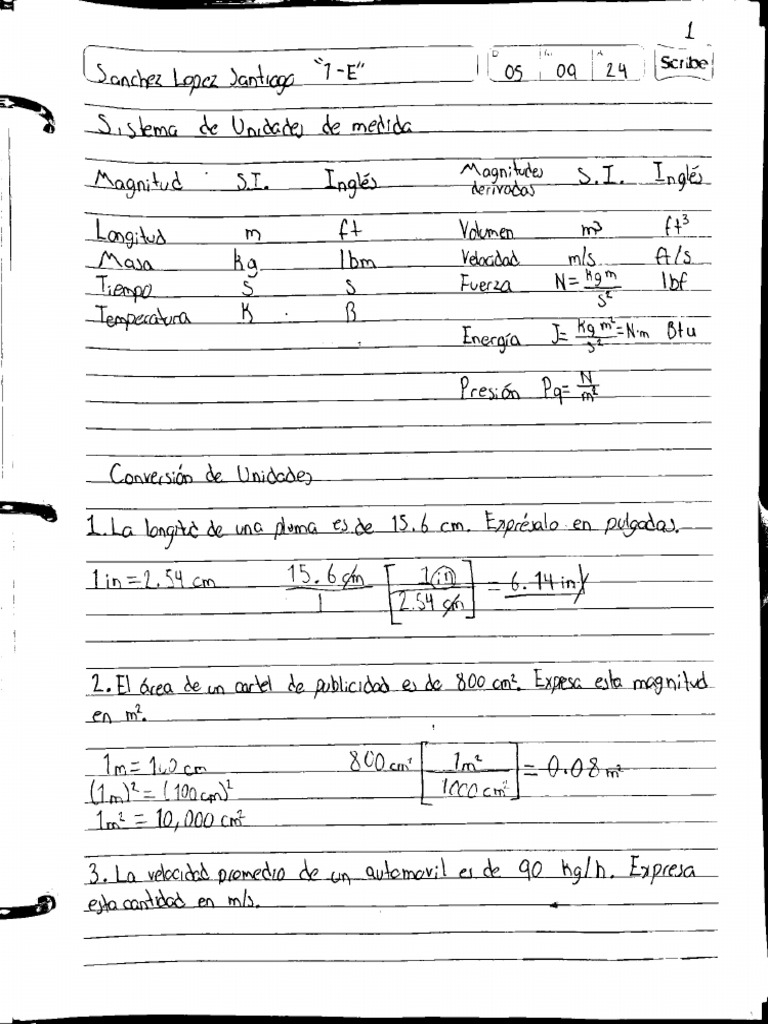 1
Sanchez Lopez Santiago "1-E"
D 05 M 09 A 24 Scribe
Sistema de Unidades de medida
Magnitud S.I. Inglés Magnitudes derivadas S.I. Inglés
Longitud m ft Volumen m³ ft³
Masa kg lbm Velocidad m/s ft/s
Tiempo s s Fuerza N= kg m / s² lbf
Temperatura K R
Energía J= kg m² / s² =N·m Btu
Presión Pa= N / m²
Conversión de Unidades
1. La longitd de una pluma es de 15.6 cm. Exprésalo en pulgadas.
1 in = 2.54 cm 15.6 cm / 1 [ 1 in / 2.54 cm ] = 6.14 in
2. El área de un cartel de publicidad es de 800 cm². Expesa esta magnitud
en m².
1m = 100 cm 800 cm² [ 1m² / 1000 cm² ] = 0.08 m²
(1m)² = (100cm)²
1m² = 10,000 cm²
3. La velocidad promedio de un automovil es de 90 kg/h. Expresa
esta cantidad en m/s.